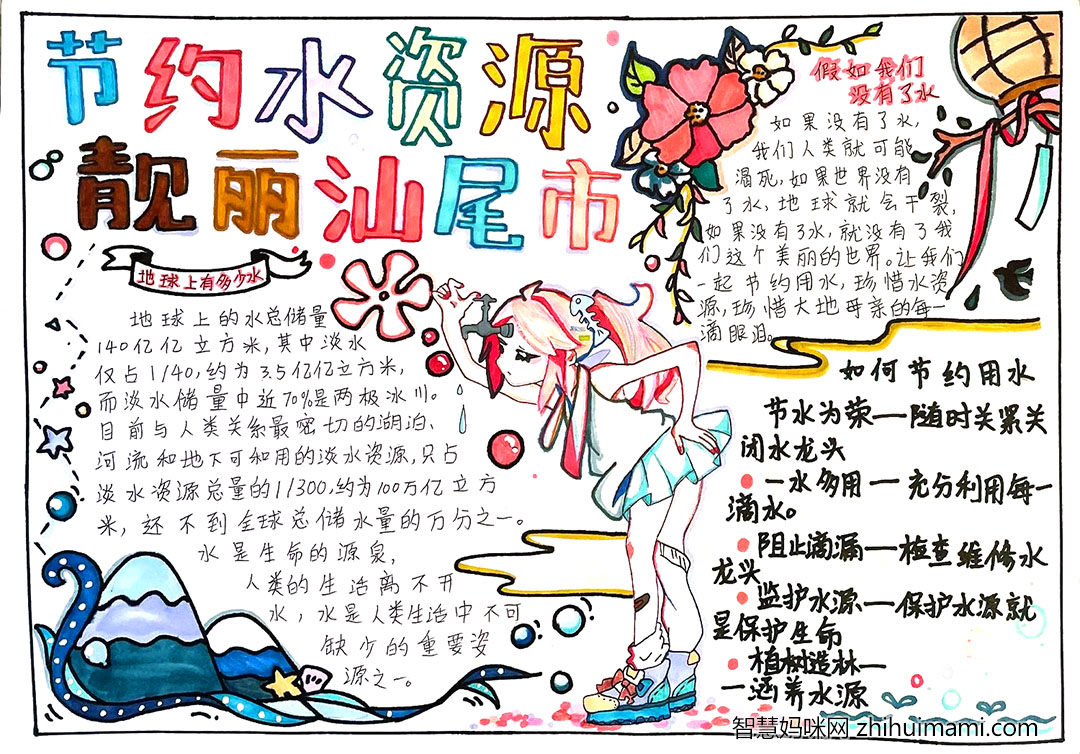 节约水资源
靓丽汕尾市
地球上有多少水
地球上的水总储量
140亿亿立方米,其中淡水
仅占1/40,约为35亿亿立方米,
而淡水储量中近70%是两极冰川。
目前与人类关系最密切的湖泊、
河流和地下可和用的淡水资源,只占
淡水资源总量的1/300,约为100万亿立方
米,还不到全球总储水量的万分之一。
水是生命的源泉,
人类的生活离不开
水,水是人类生活中不可
缺少的重要姿
源之一。
假如我们
没有了水
如果没有了水,
我们人类就可能
渴死,如果世界没有
了水,地球就会干裂,
如果没有了水,就没有了我
们这个美丽的世界。让我们
一起节约用水,珍惜水资
源,珍惜大地母亲的每一
滴眼泪。
如何节约用水
节水为荣—随时关紧关
闭水龙头
一水多用—充分利用每一
滴水。
阻止滴漏—检查维修水
龙头
监护水源—保护水源就
是保护生命
植树造林—
—涵养水源
智慧妈咪网 zhihuimami.com